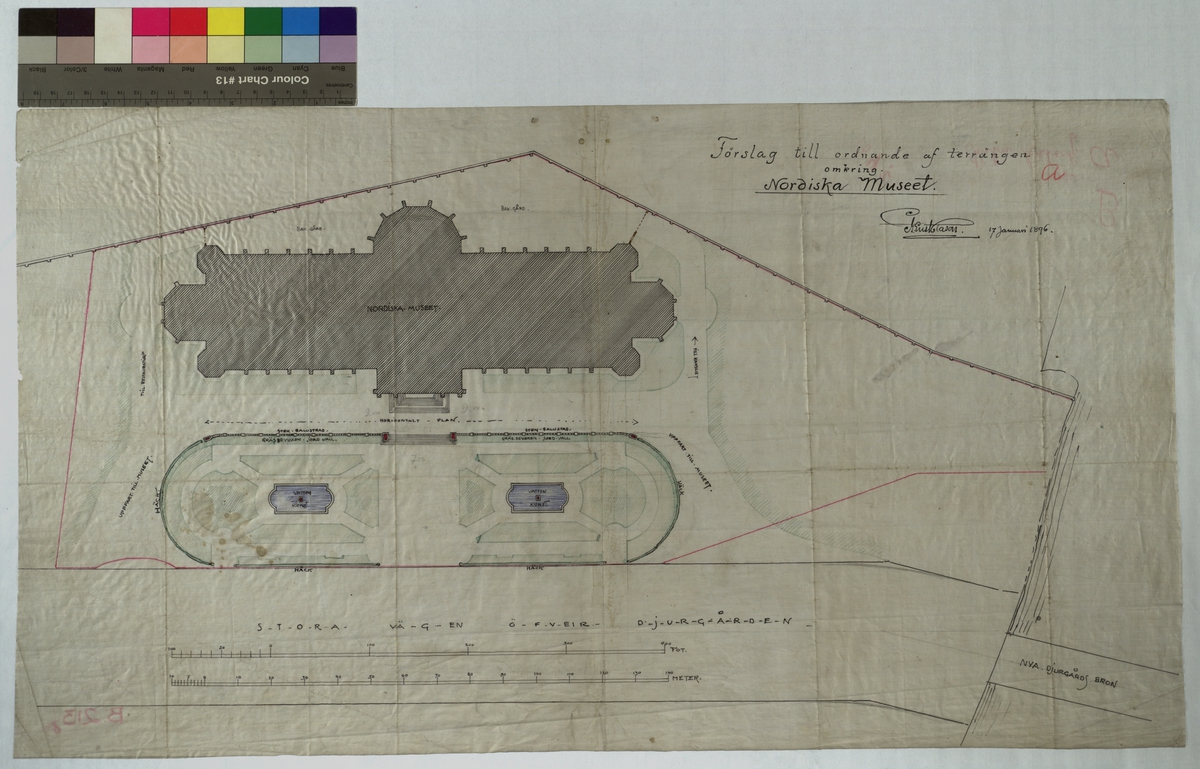 Black
3/Color
White
Magenta
Red
Yellow
Green
Cyan
Blue
Colour Chart #13
Centimetres
Förslag till ordnande af terrängen
omkring
Nordiska Museet.
17 Januari 1896.
a
NORDISKA MUSEET.
HORIZONTALT - PLAN
UPPFART TILL MUSEET.
HÄCK
UPPFART TILL MUSEET.
HÄCK
VATTEN
VATTEN
HÄCK
HÄCK
S-T-O-R-A- VÄ-G-EN Ö-F-VEIR- D-J-U-R-G-Å-R-D-E-N
FOT.
METER.
NYA DJURGÅRDS BRON
B 213